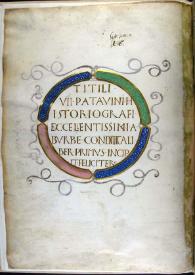 TITILI
VII·PATAVINI·H
ISTORIOGRAFI
ECCELENTISSIMI·A
BVRBE·CONDITA·LI
BER·PRIMVS·INCIP
IT·FELICITER